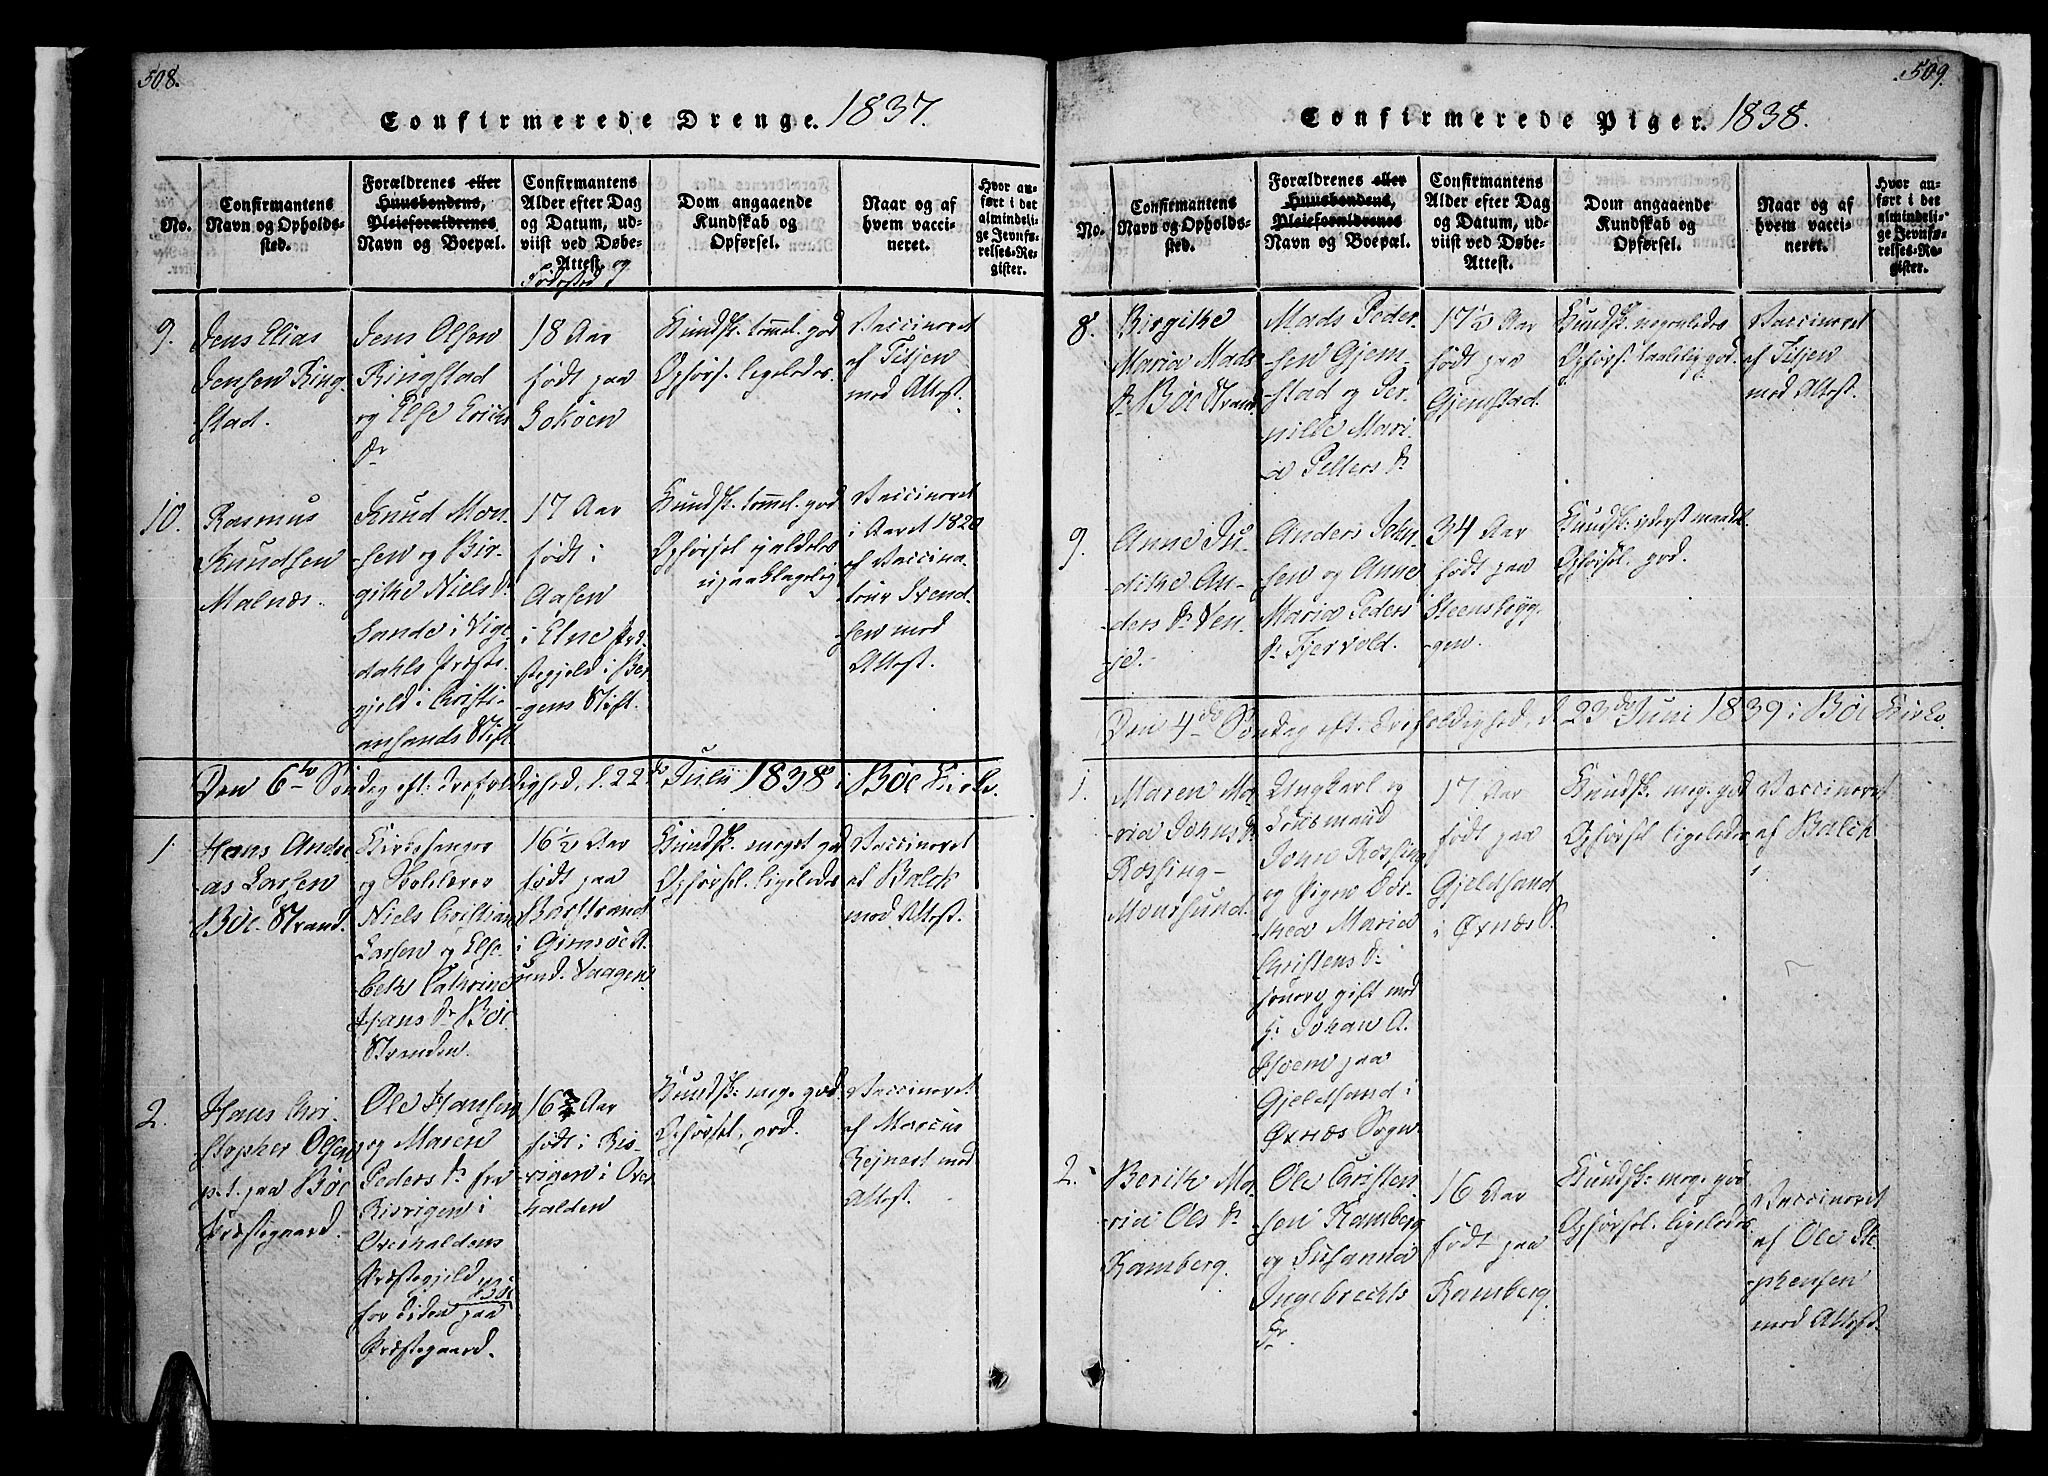 508.
Confirmerede Drenge. 1837.
No.
Confirmantens
Navn og Opholds-
sted.
Forældrenes eller
Huusbondens,
Pleieforældrenes
Navn og Boepæl.
Confirmantens
Alder efter Dag
og Datum, ud-
viist ved Døbe-
Attest, og
Fødested
Dom angaaende
Kundskab og
Opførsel.
Naar og af
hvem vacci-
neret.
Hvor an-
ført i det
almindeli-
ge Jevnfø-
relses-Re-
gister.
9.
Jens Elias
Jensen Ring-
stad.
Jens Olsen
Ringstad
og Else Erichs
Dr
18 Aar
født paa
Kundsk. temmel. god
Opførs. ligeledes.
Vaccineret
af Tisjen
med Attest.
10.
Rasmus
Knudsen
Malnæs.
Knud Mon-
sen og Bir-
githe Niels Dr
Sande i Vige-
dahls Præste-
gjeld i Christi-
ansands Stift.
17 Aar
født i
Aasen
i Elne Præ-
stegjeld i Ber-
gens Stift.
Kundsk. temmel. god
Opførsel gandske
upaaklagelig
Vaccineret
i Aaret 1820
af Vaccina-
teur Svend-
sen med
Attest.
Den 6te Søndag eft: Trefoldighed, d. 22de Julii 1838 i Böe Kirke.
1.
Hans Andre-
as Larsen
Böe-Strand.
Kirkesanger
og Skolelærer
Niels Christian
Larsen og Else-
beth Cathrine
Hans Dr Böe
Stranden.
16½ Aar
født paa
Barstrand
i Gimsöe A.
und. Vaagen
Kundsk. meget god
Opførsel. ligeledes
Vaccineret
af Balck
med Attest.
2.
Hans Chri-
stopher Olsen
p.t. paa Böe
Præstegaard.
Ole Hansen
og Maren
Peders Dr fra
Risvigen i
Overhaldens
Præstegjeld
for tiden paa Böe
Præstegaard.
16 Aar
født i Ris-
vigen i Over-
halden
Kundsk: meg. god
Opførsel. god.
Vaccineret
af Marcus
Rejnert med
Attest.
509.
Confirmerede Piger. 1838.
No.
Confirmantens
Navn og Opholds-
sted.
Forældrenes eller
Huusbondens,
Pleieforældrenes
Navn og Boepæl.
Confirmantens
Alder efter Dag
og Datum, ud-
viist ved Døbe-
Attest.
Dom angaaende
Kundskab og
Opførsel.
Naar og af
hvem vacci-
neret.
Hvor an-
ført i det
almindeli-
ge Jevnfø-
relses-Re-
gister.
8.
Birgithe
Maria Mads
Dr Böe Strand
Mads Peder-
sen Gjem-
stad og Per-
nille Mari-
a Petters Dr
17½ Aar
født paa
Gjemstad.
Kundsk. nogenledes
Opførs. taalelig god.
Vaccineret
af Tisjen
med Attest.
9.
Anne Ju-
dithe An-
ders Dr Ven-
je.
Anders John-
sen og Anne
Maria Peders
Dr Fjervold.
34 Aar
født paa
Steensbyg-
gen.
Kundsk: yderst maadel.
Opførsel. god.
Den 4de Søndag eft. Trefoldighed, d. 23de Juni 1839 i Böe Kirke.
1.
Maren Ma-
ria Johns Dr
Rossing-
Moursund.
Ungkarl og
Lensmand
John Rossing
og Pigen Dor-
thea Maria
Christens Dr
senere gift med
H: Johan A.
Hoem paa
Gjeldsand i
Øxnæs Sogn
17 Aar
født paa
Gjeldsand
i Øxnæs S.
Kundsk. meg. god
Opførsel ligeledes
Vaccineret
af Balck
2.
Berith Ma-
ria Ols Dr
Ramberg.
Ole Christen-
sen Ramberg
og Susanna
Ingebrechts
Dr.
16 Aar
født paa
Ramberg.
Kundsk: meg. god
Opførsel. ligeledes
Vaccineret
af Ole Ste-
phensen
med Attest.